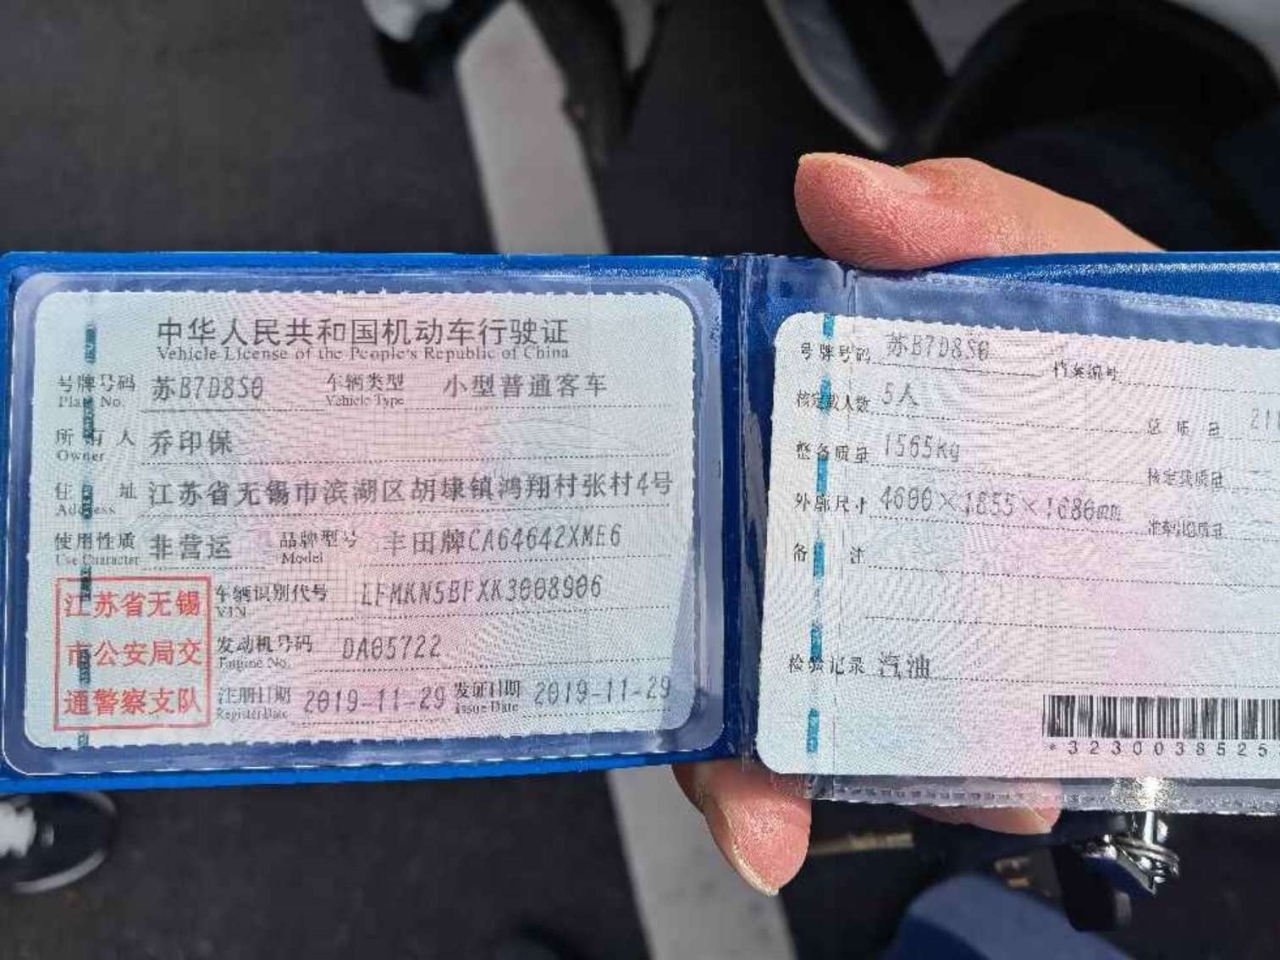 中华人民共和国机动车行驶证
Vehicle License of the People's Republic of China
号牌号码 苏B7D8S0 车辆类型 小型普通客车
Plate No. Vehicle Type
所有人 乔印保
Owner
住址 江苏省无锡市滨湖区胡埭镇鸿翔村张村4号
Address
使用性质 非营运 品牌型号 丰田牌CA64642XME6
Use Character Model
江苏省无锡
市公安局交
通警察支队
车辆识别代号 LFMKN5BFXK3008906
VIN
发动机号码 DA05722
Engine No.
注册日期 2019-11-29 发证日期 2019-11-29
Register Date Issue Date
号牌号码 苏B7D8S0 档案编号
核定载人数 5人 总质量 21
整备质量 1565Kg 核定载质量
外廓尺寸 4600×1855×1680mm 准牵引总质量
备注
检验记录 汽油
*3230038525